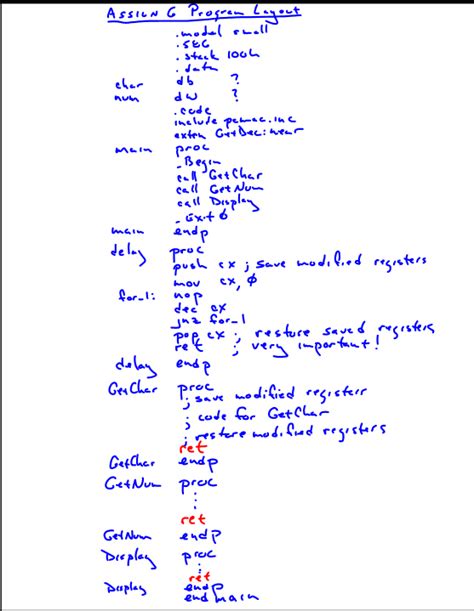 ASSIGN 6 Program Layout
.model small
.586
.stack 100h
.data
char db ?
num dw ?
.code
include pcmac.inc
extrn GetDec:near
main proc
_Begin
call GetChar
call GetNum
call Display
_Exit 0
main endp
delay proc
push cx ; save modified registers
mov cx, 0
for_1: nop
dec cx
jnz for_1
pop cx ; restore saved registers
ret ; very important!
delay endp
GetChar proc
; save modified registers
; code for GetChar
; restore modified registers
ret
GetChar endp
GetNum proc
:
:
ret
GetNum endp
Display proc
:
ret
Display endp
end main